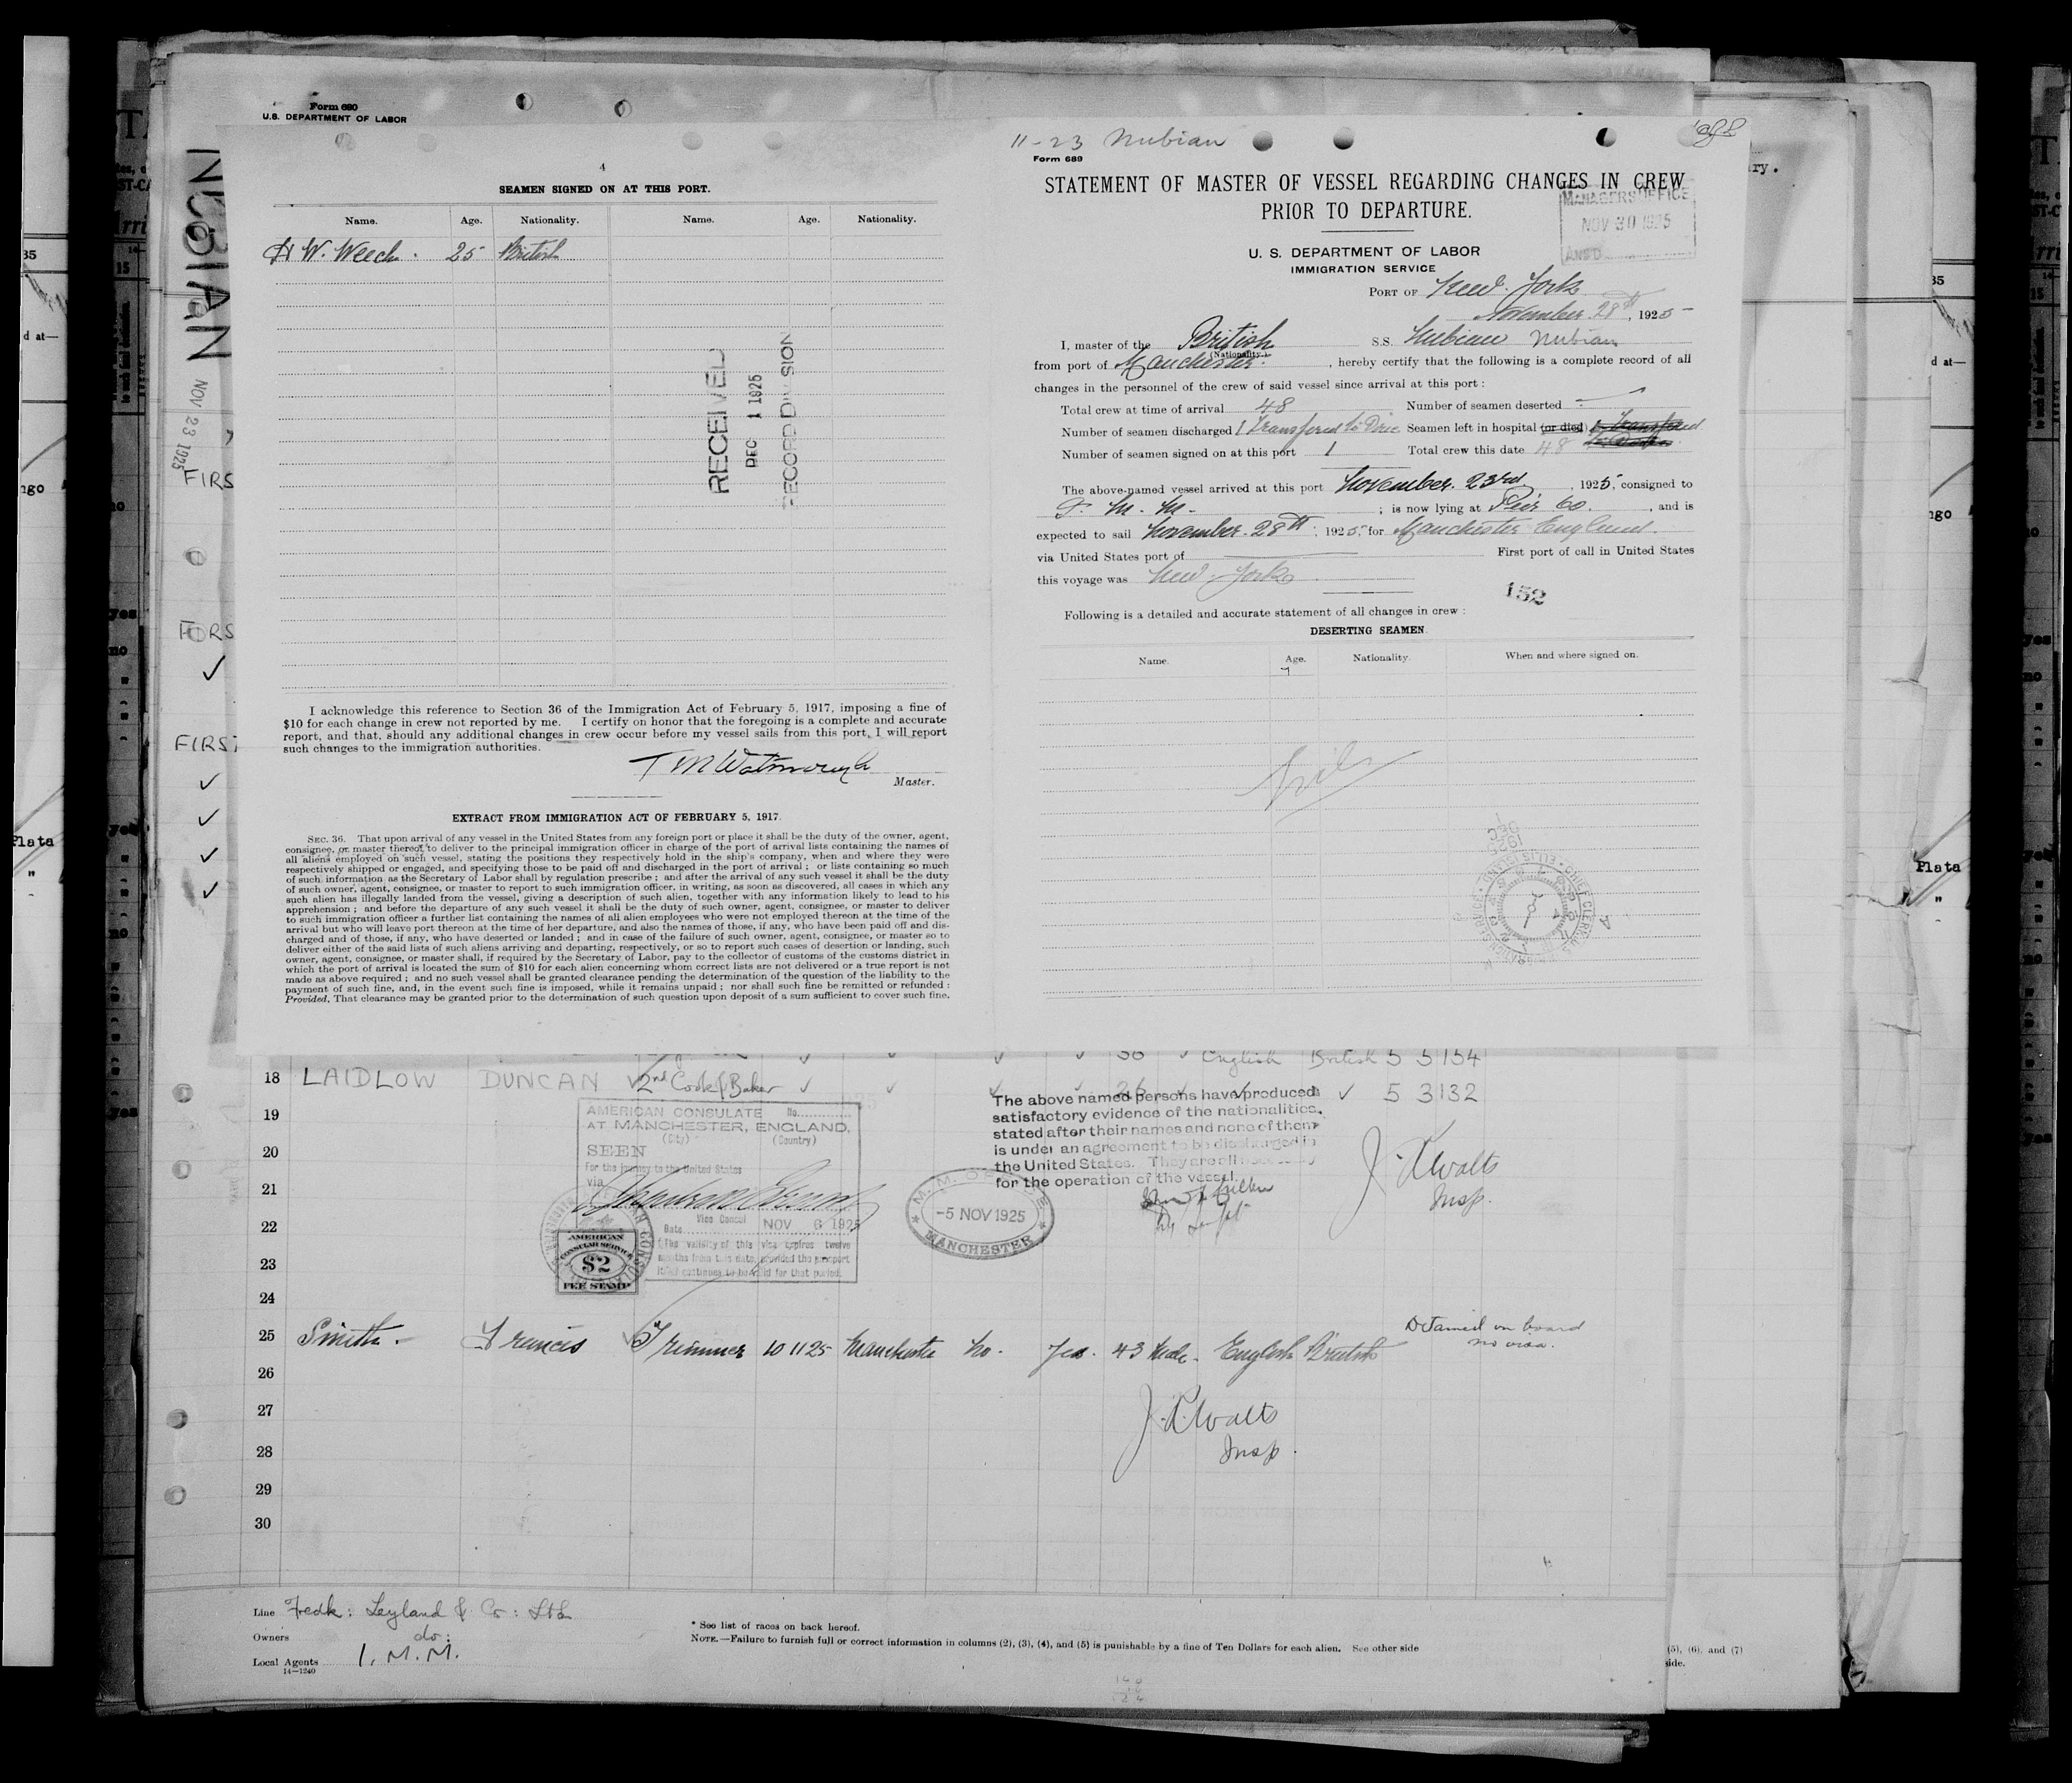 Form 680
U.S. DEPARTMENT OF LABOR
NUBIAN
NOV 23 1925
FIRS
FIRS
FIRST
4
SEAMEN SIGNED ON AT THIS PORT.
Name. Age. Nationality. Name. Age. Nationality.
H W. Weech. 25 British
RECEIVED
DEC 1 1925
RECORD DIVISION
I acknowledge this reference to Section 36 of the Immigration Act of February 5, 1917, imposing a fine of
$10 for each change in crew not reported by me. I certify on honor that the foregoing is a complete and accurate
report, and that, should any additional changes in crew occur before my vessel sails from this port, I will report
such changes to the immigration authorities.
T M Watmough
Master.
EXTRACT FROM IMMIGRATION ACT OF FEBRUARY 5, 1917.
SEC. 36. That upon arrival of any vessel in the United States from any foreign port or place it shall be the duty of the owner, agent,
consignee, or master thereof to deliver to the principal immigration officer in charge of the port of arrival lists containing the names of
all aliens employed on such vessel, stating the positions they respectively hold in the ship's company, when and where they were
respectively shipped or engaged, and specifying those to be paid off and discharged in the port of arrival; or lists containing so much
of such information as the Secretary of Labor shall by regulation prescribe; and after the arrival of any such vessel it shall be the duty
of such owner, agent, consignee, or master to report to such immigration officer, in writing, as soon as discovered, all cases in which any
such alien has illegally landed from the vessel, giving a description of such alien, together with any information likely to lead to his
apprehension; and before the departure of any such vessel it shall be the duty of such owner, agent, consignee, or master to deliver
to such immigration officer a further list containing the names of all alien employees who were not employed thereon at the time of the
arrival but who will leave port thereon at the time of her departure, and also the names of those, if any, who have been paid off and dis-
charged and of those, if any, who have deserted or landed; and in case of the failure of such owner, agent, consignee, or master so to
deliver either of the said lists of such aliens arriving and departing, respectively, or so to report such cases of desertion or landing, such
owner, agent, consignee, or master, shall, if required by the Secretary of Labor, pay to the collector of customs of the customs district in
which the port of arrival is located the sum of $10 for each alien concerning whom correct lists are not delivered or a true report is not
made as above required; and no such vessel shall be granted clearance pending the determination of the question of the liability to the
payment of such fine, and, in the event such fine is imposed, while it remains unpaid; nor shall such fine be remitted or refunded:
Provided, That clearance may be granted prior to the determination of such question upon deposit of a sum sufficient to cover such fine.
11-23 Nubian
Form 689
STATEMENT OF MASTER OF VESSEL REGARDING CHANGES IN CREW
PRIOR TO DEPARTURE.
MANAGERS OFFICE
NOV 30 1925
ANS'D
U. S. DEPARTMENT OF LABOR
IMMIGRATION SERVICE
PORT OF New York
November 28th, 1925
I, master of the British S.S. Nubian Nubian
(Nationality.)
from port of Manchester, hereby certify that the following is a complete record of all
changes in the personnel of the crew of said vessel since arrival at this port:
Total crew at time of arrival 48 Number of seamen deserted -
Number of seamen discharged 1 Transfered to Seamen left in hospital (or died) Transfered
Number of seamen signed on at this port 1 Total crew this date 48
The above-named vessel arrived at this port November. 23rd, 1925, consigned to
I. M. M. ; is now lying at Pier 60. , and is
expected to sail November. 28th, 1925, for Manchester England.
via United States port of First port of call in United States
this voyage was New York
152
Following is a detailed and accurate statement of all changes in crew:
DESERTING SEAMEN
Name. Age. Nationality. When and where signed on.
Nil
1925
DEC
1
36 English British 5 5 154
18 LAIDLOW DUNCAN 2nd Cook & Baker 26 5 3 132
19
20
21
22
23
24
AMERICAN CONSULATE No.
AT MANCHESTER, ENGLAND.
(City) (Country)
SEEN
For the journey to the United States
via
Vice Consul
Date NOV 6 1925
The validity of this visa expires twelve
months from this date, provided the passport
itself continues to be valid for that period.
AMERICAN
CONSULAR SERVICE
$2
FEE STAMP
M. M. OFFICE
-5 NOV 1925
MANCHESTER
The above named persons have produced
satisfactory evidence of the nationalities
stated after their names and none of them
is under an agreement to be discharged in
the United States. They are all necessary
for the operation of the vessel.
J. Walts
Insp.
25 Smith Francis Trimmer 10 11 25 Manchester No. Yes. 43 Male. English British Detained on board
no visa.
26
27
28
29
30
J. Walts
Insp.
Line Fredk: Leyland & Co: Ltd
Owners do:
Local Agents I. M. M.
14-1240
* See list of races on back hereof.
NOTE.—Failure to furnish full or correct information in columns (2), (3), (4), and (5) is punishable by a fine of Ten Dollars for each alien. See other side
(5), (6), and (7)
side.
Plata
"
Plata
"